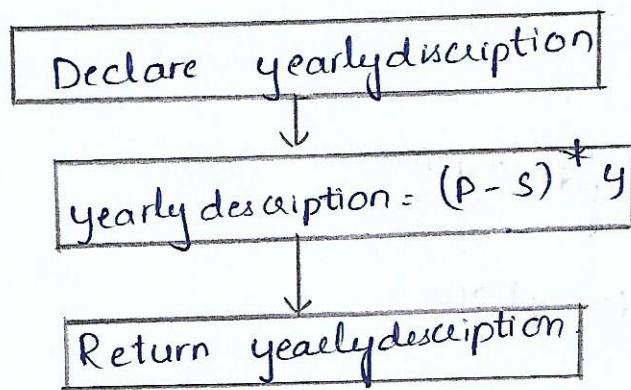 Declare yearlydiscription
yearly description = (P - S) * y
Return yearlydescription.